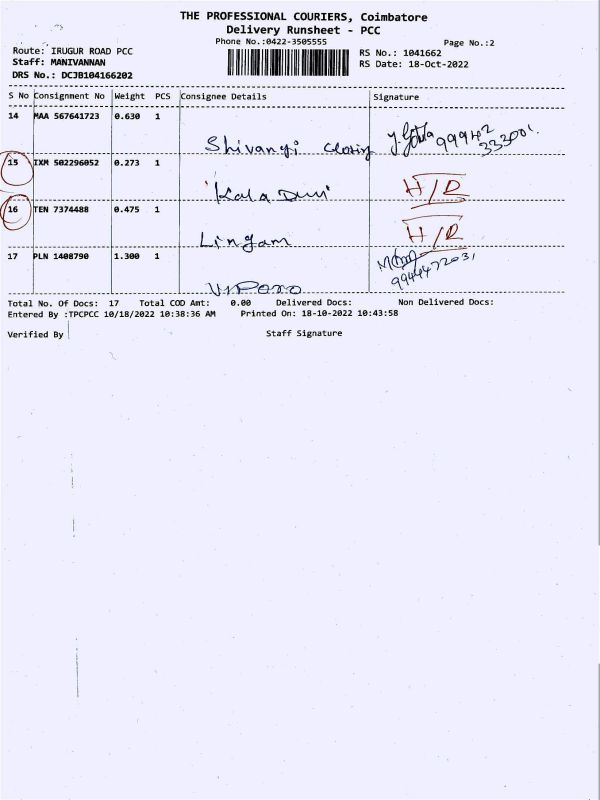 THE PROFESSIONAL COURIERS, Coimbatore
Delivery Runsheet - PCC
Phone No.:0422-3505555
Page No.:2
Route: IRUGUR ROAD PCC
RS No.: 1041662
Staff: MANIVANNAN
RS Date: 18-Oct-2022
DRS No.: DCJB104166202
S No Consignment No Weight PCS Consignee Details Signature
14 MAA 567641723 0.630 1
Shivangi 99942
333001
15 IXM 502296052 0.273 1
Kala Devi H/D
16 TEN 7374488 0.475 1
Lingam H/D
17 PLN 1408790 1.300 1
9944472031
Total No. Of Docs: 17 Total COD Amt: 0.00 Delivered Docs: Non Delivered Docs:
Entered By :TPCPCC 10/18/2022 10:38:36 AM Printed On: 18-10-2022 10:43:58
Verified By Staff Signature